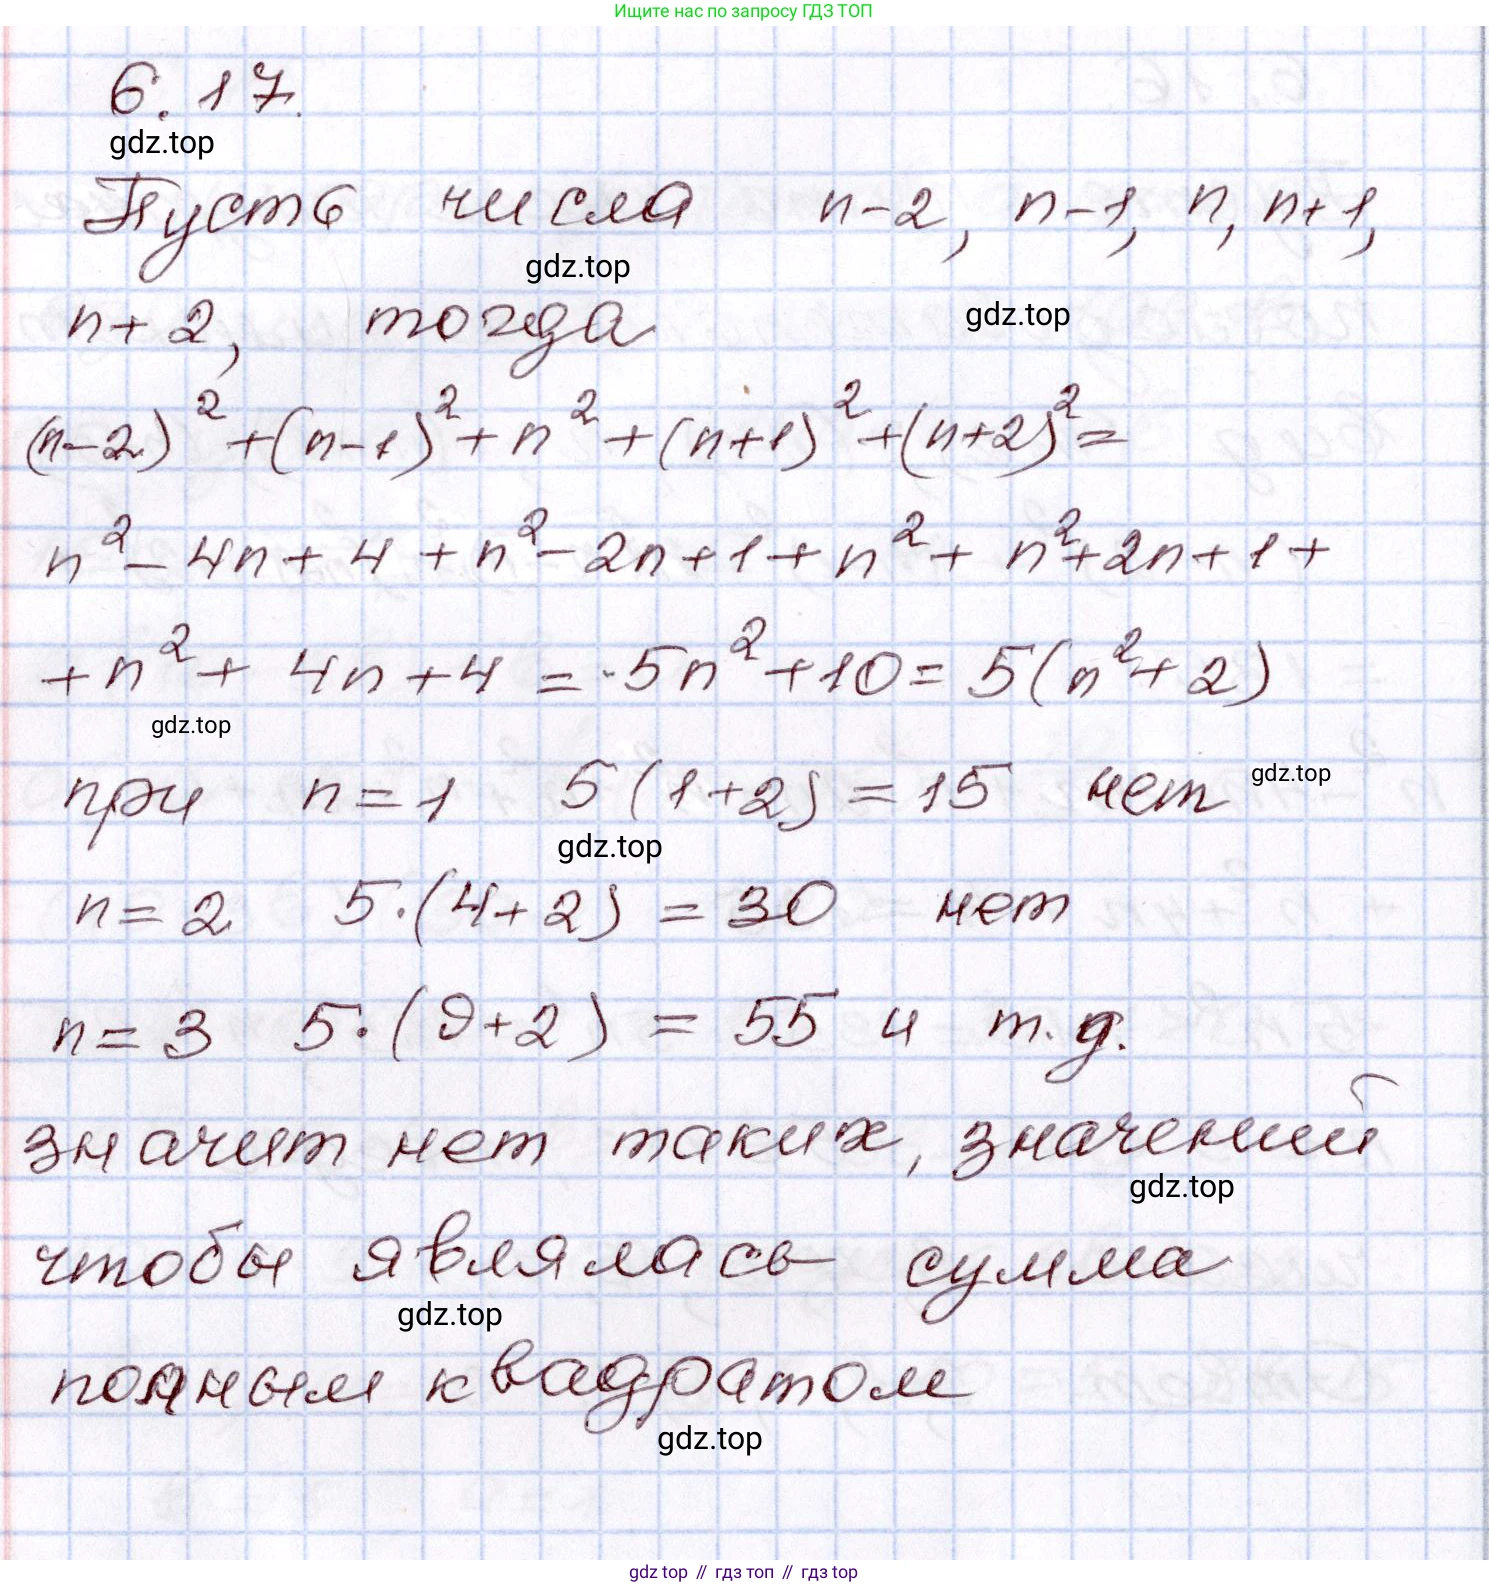 Ищите нас по запросу ГДЗ ТОП
6.17.
gdz.top
Пусть числа n-2, n-1, n, n+1,
gdz.top
n+2, тогда
gdz.top
(n-2)² + (n-1)² + n² + (n+1)² + (n+2)² =
n² - 4n + 4 + n² - 2n + 1 + n² + n² + 2n + 1 +
+ n² + 4n + 4 = 5n² + 10 = 5(n² + 2)
gdz.top
при n = 1 5(1+2) = 15 нет
gdz.top
gdz.top
n = 2 5·(4+2) = 30 нет
n = 3 5·(9+2) = 55 и т.д.
значит нет таких, значений
gdz.top
чтобы являлась сумма
gdz.top
полным квадратом
gdz.top
gdz top // гдз топ // гдз top